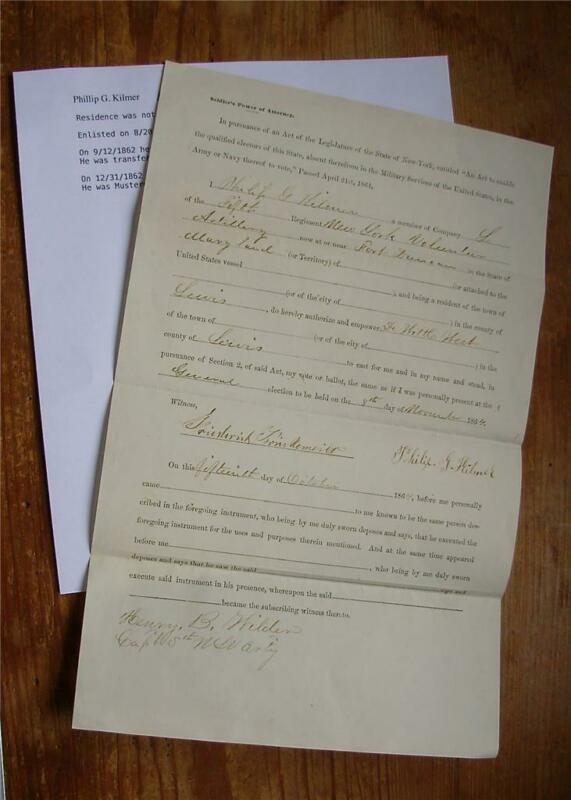 Phillip G. Kilmer
Residence was not
Enlisted on 8/20
On 9/12/1862 he
He was transfer
On 12/31/1862
He was Muster
Soldier's Power of Attorney.
In pursuance of an Act of the Legislature of the State of New-York, entitled "An Act to enable
the qualified electors of this State, absent therefrom in the Military Services of the United States, in the
Army or Navy thereof to vote," Passed April 21st, 1864,
I Philip G Kilmer a member of Company L
of the Fifth Regiment New York Volunteer
Artillery now at or near Fort Duncan in the State of
Maryland (or Territory) of (or attached to the
United States vessel ), and being a resident of the town of
(or of the city of ) in the county of
Lewis , do hereby authorize and empower
of the town of (or of the city of ) in the
county of Lewis to cast for me and in my name and stead, in
pursuance of Section 2, of said Act, my vote or ballot, the same as if I was personally present at the
General election to be held on the 8th day of November 1864.
Witness,
Philip G Kilmer
On this fifteenth day of October 1864, before me personally
came to me known to be the same person des-
cribed in the foregoing instrument, who being by me duly sworn deposes and says, that he executed the
foregoing instrument for the uses and purposes therein mentioned. And at the same time appeared
before me , who being by me duly sworn
deposes and says that he saw the said sign and
execute said instrument in his presence, whereupon the said
became the subscribing witness thereto.
Henry B. Wilder
Capt 5th N Y Arty